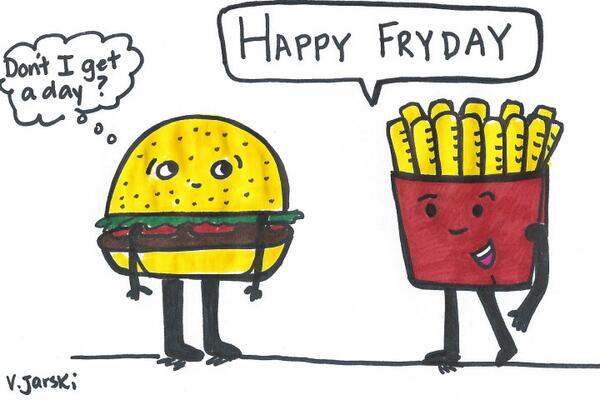 Don't I get
a day?
HAPPY FRYDAY
V.Jarski